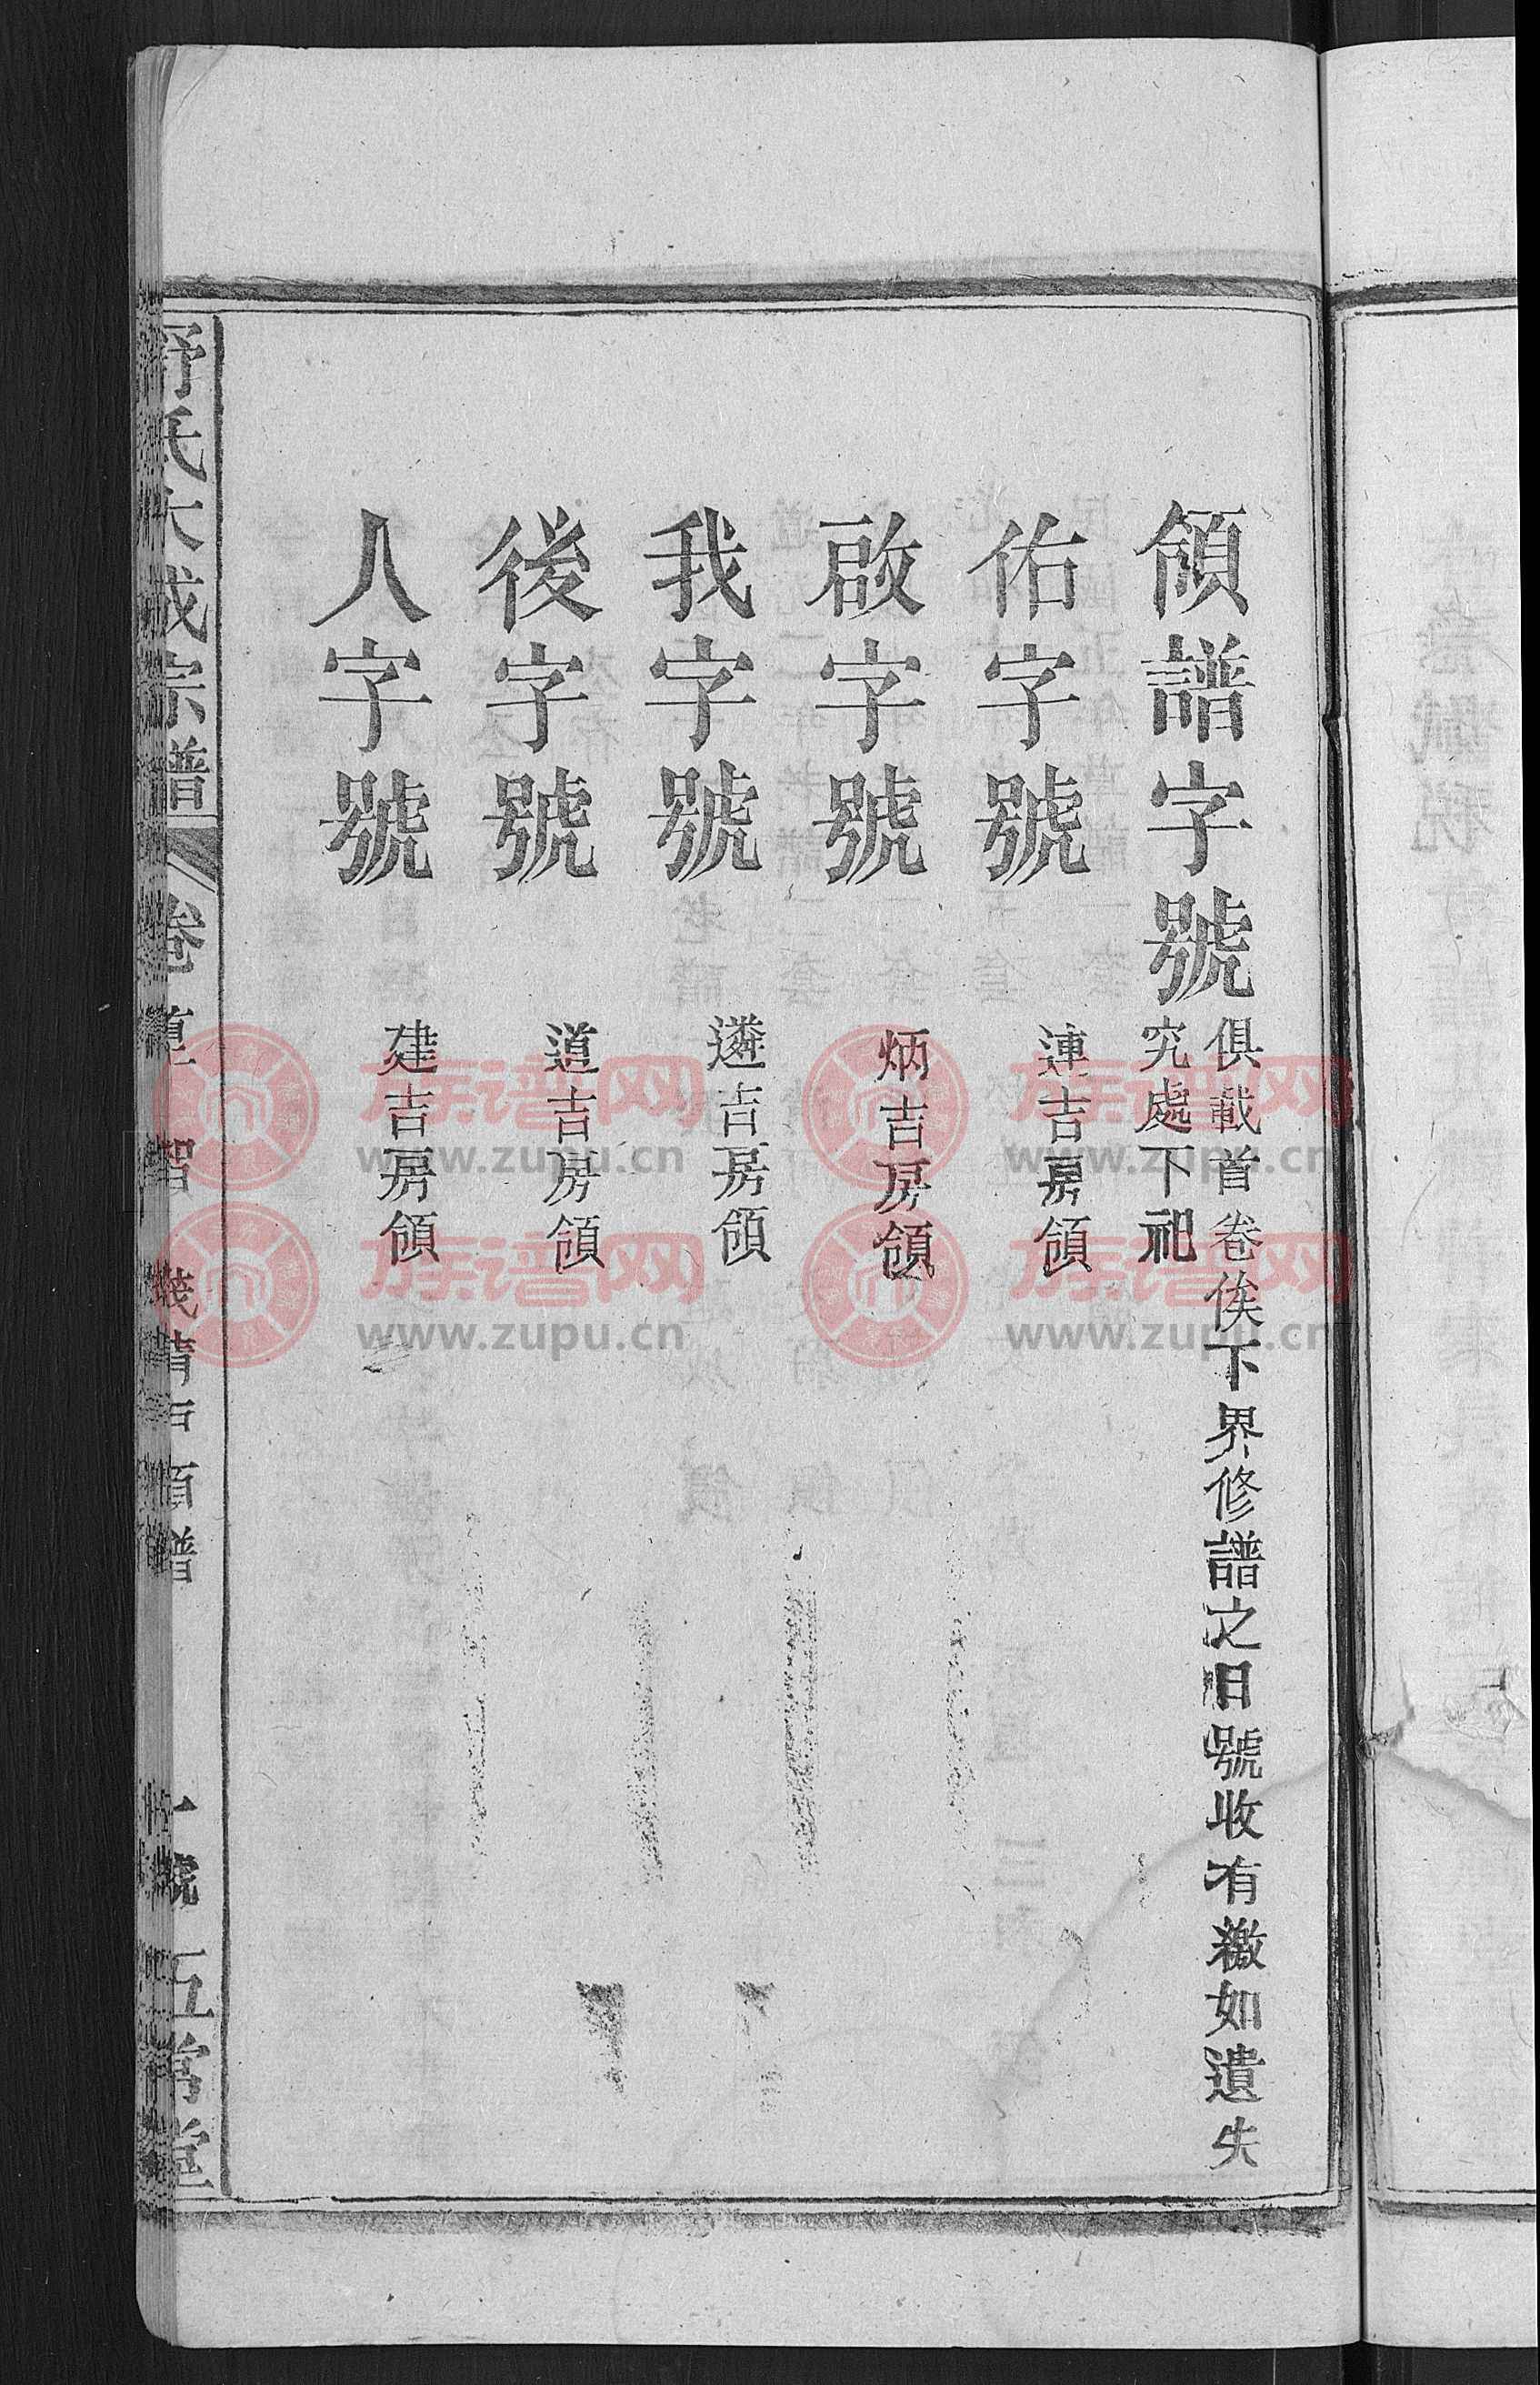 領譜字號
俱載首卷俟下界修譜之日號收有繳如遺失
究處下祀
佑字號 連吉房領
啟字號 炳吉房領
我字號 遴吉房領
後字號 道吉房領
人字號 建吉房領
舒氏大成宗譜 卷 領譜 一 五常堂
族谱网
www.zupu.cn
族谱网
www.zupu.cn
族谱网
www.zupu.cn
族谱网
www.zupu.cn